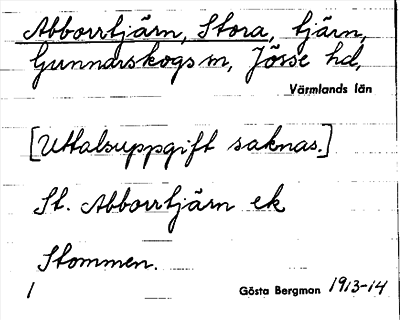 Abborrtjärn, Stora, tjärn,
Gunnarskogs sn, Jösse hd,
Värmlands län
[Uttalsuppgift saknas.]
St. Abborrtjärn ek
Stommen.
1
Gösta Bergman 1913-14